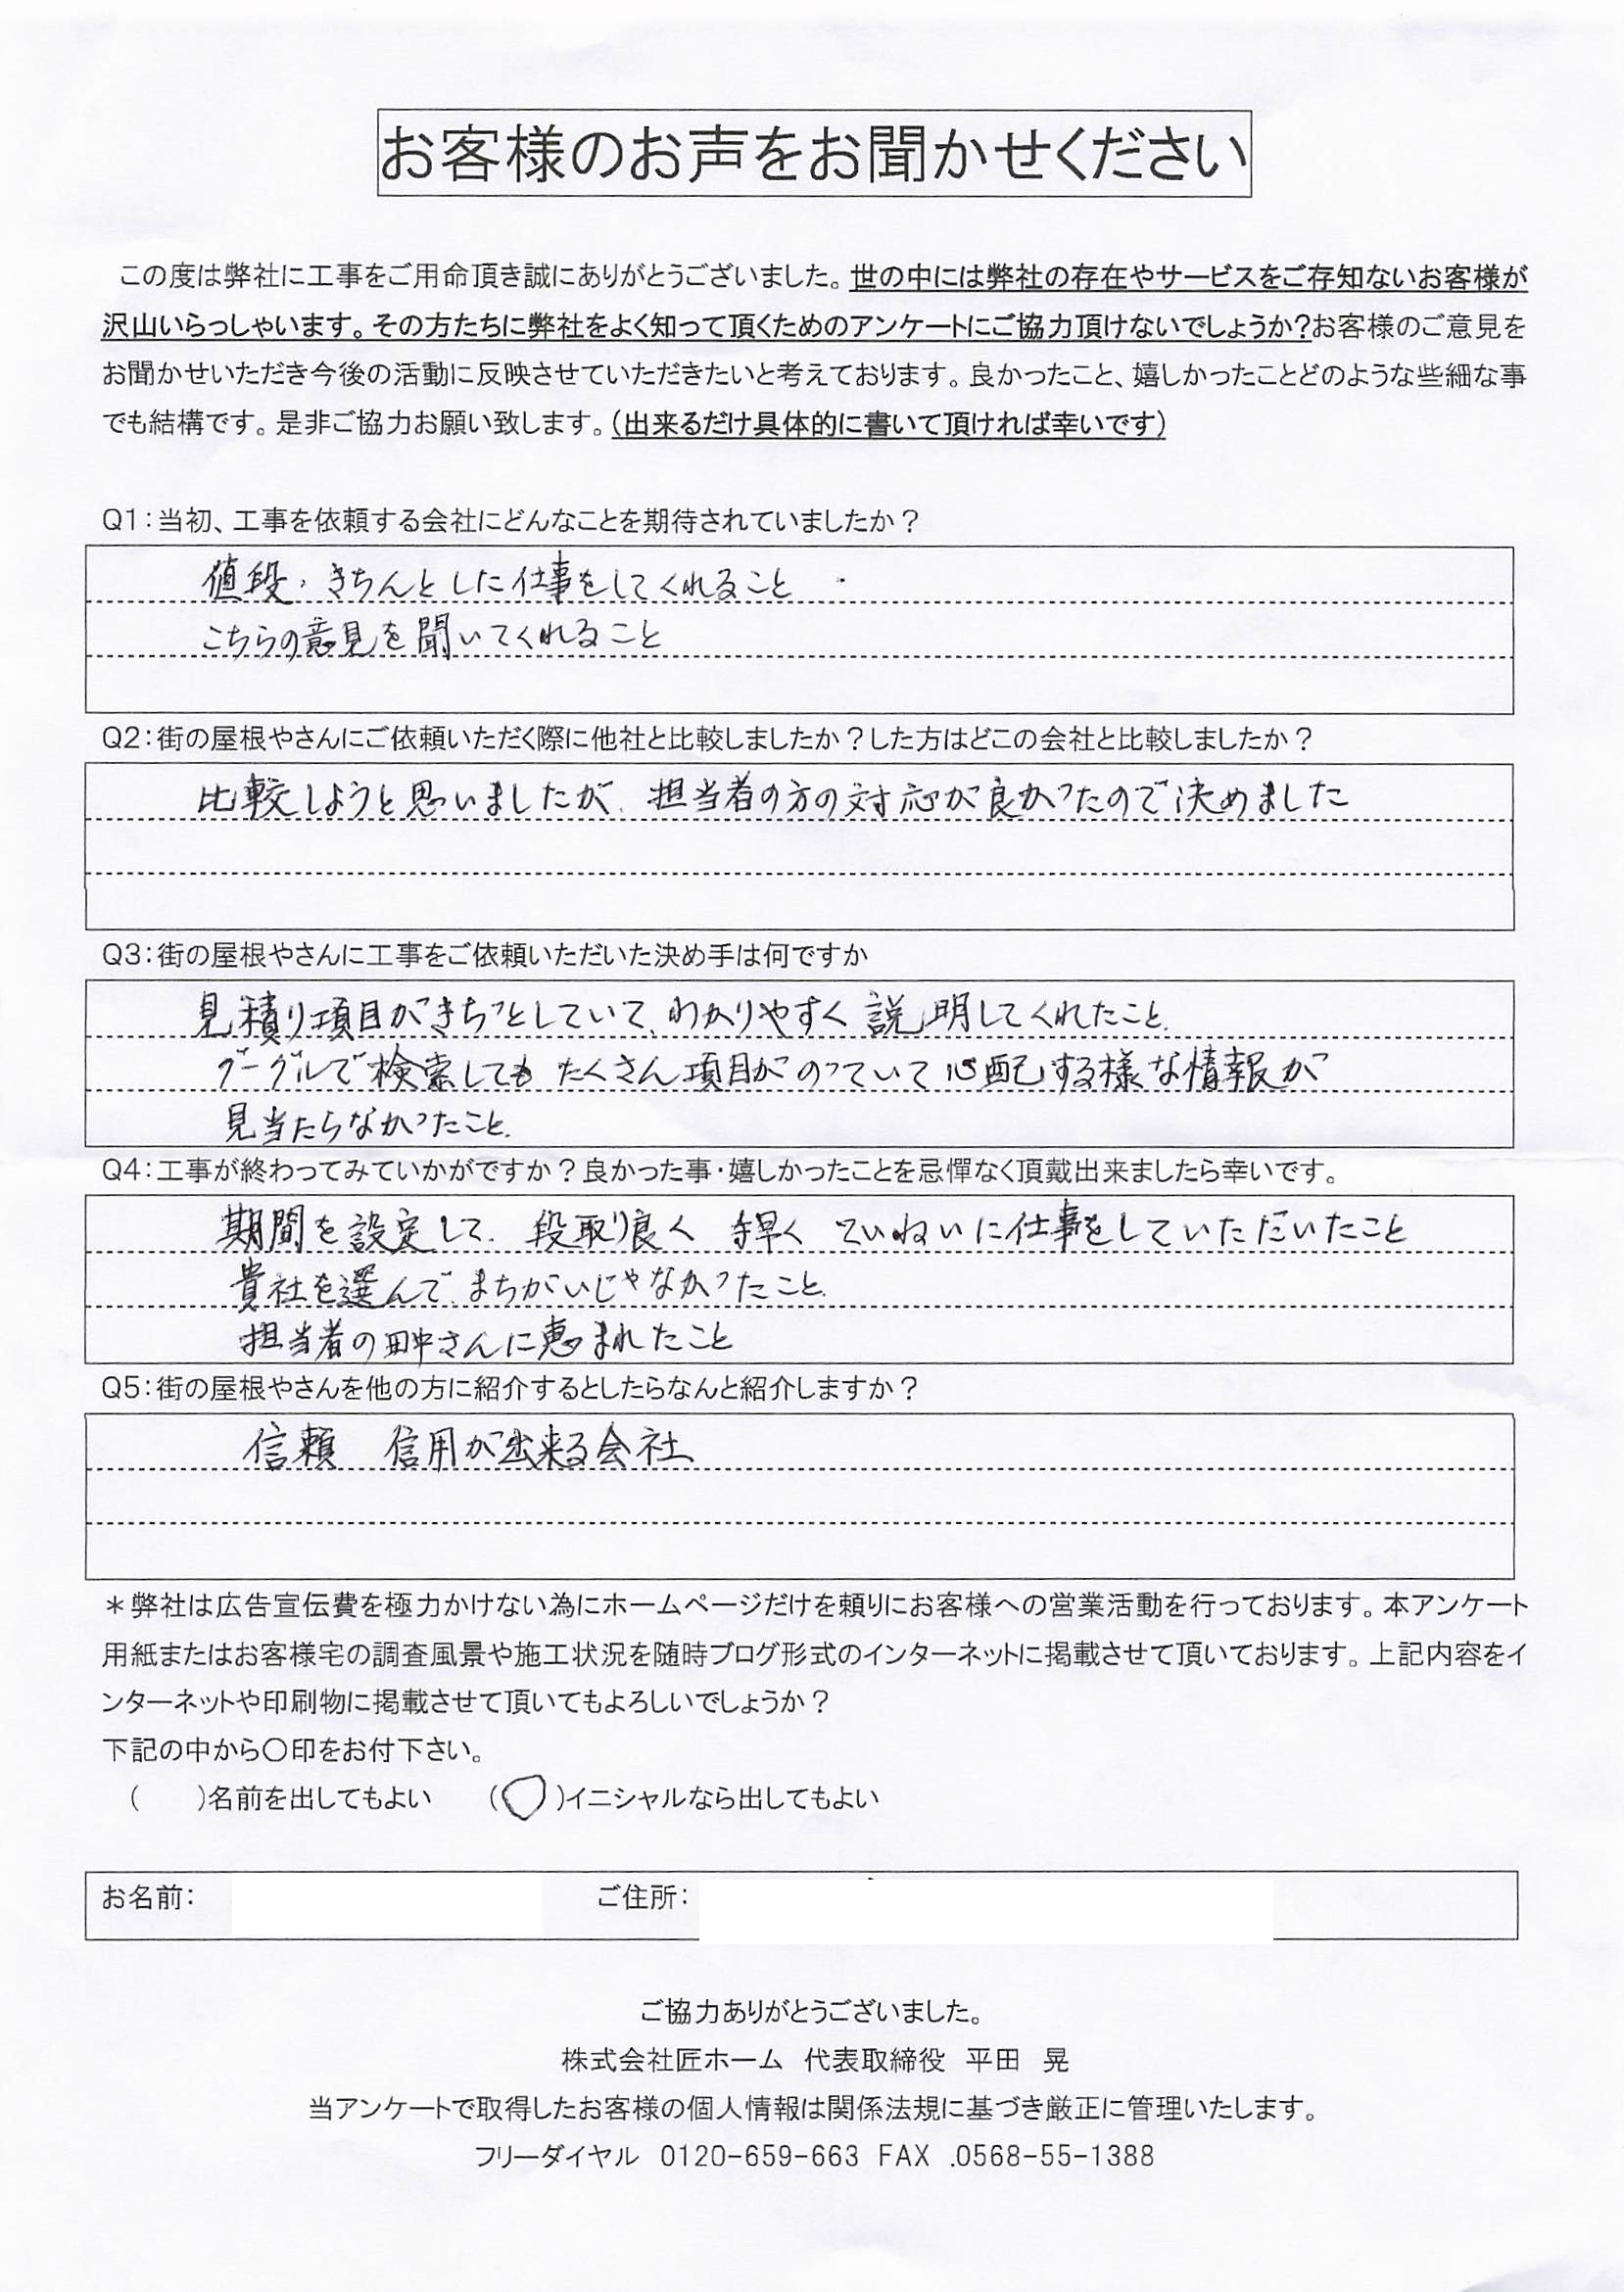 お客様のお声をお聞かせください
この度は弊社に工事をご用命頂き誠にありがとうございました。世の中には弊社の存在やサービスをご存知ないお客様が
沢山いらっしゃいます。その方たちに弊社をよく知って頂くためのアンケートにご協力頂けないでしょうか?お客様のご意見を
お聞かせいただき今後の活動に反映させていただきたいと考えております。良かったこと、嬉しかったことどのような些細な事
でも結構です。是非ご協力お願い致します。(出来るだけ具体的に書いて頂ければ幸いです)
Q1:当初、工事を依頼する会社にどんなことを期待されていましたか?
値段・きちんとした仕事をしてくれること
こちらの意見を聞いてくれること
Q2:街の屋根やさんにご依頼いただく際に他社と比較しましたか?した方はどこの会社と比較しましたか?
比較しようと思いましたが、担当者の方の対応が良かったので決めました
Q3:街の屋根やさんに工事をご依頼いただいた決め手は何ですか
見積り項目がきちっとしていて、わかりやすく説明してくれたこと、
グーグルで検索しても たくさん項目がのっていて心配する様な情報が
見当たらなかったこと、
Q4:工事が終わってみていかがですか?良かった事・嬉しかったことを忌憚なく頂戴出来ましたら幸いです。
期間を設定して、段取り良く 手早く ていねいに仕事をしていただいたこと
貴社を選んで、まちがいじゃなかったこと、
担当者の田中さんに恵まれたこと
Q5:街の屋根やさんを他の方に紹介するとしたらなんと紹介しますか?
信頼 信用が出来る会社、
*弊社は広告宣伝費を極力かけない為にホームページだけを頼りにお客様への営業活動を行っております。本アンケート
用紙またはお客様宅の調査風景や施工状況を随時ブログ形式のインターネットに掲載させて頂いております。上記内容をイ
ンターネットや印刷物に掲載させて頂いてもよろしいでしょうか?
下記の中から〇印をお付下さい。
(  )名前を出してもよい (〇)イニシャルなら出してもよい
お名前: ご住所:
ご協力ありがとうございました。
株式会社匠ホーム 代表取締役 平田 晃
当アンケートで取得したお客様の個人情報は関係法規に基づき厳正に管理いたします。
フリーダイヤル 0120-659-663 FAX .0568-55-1388